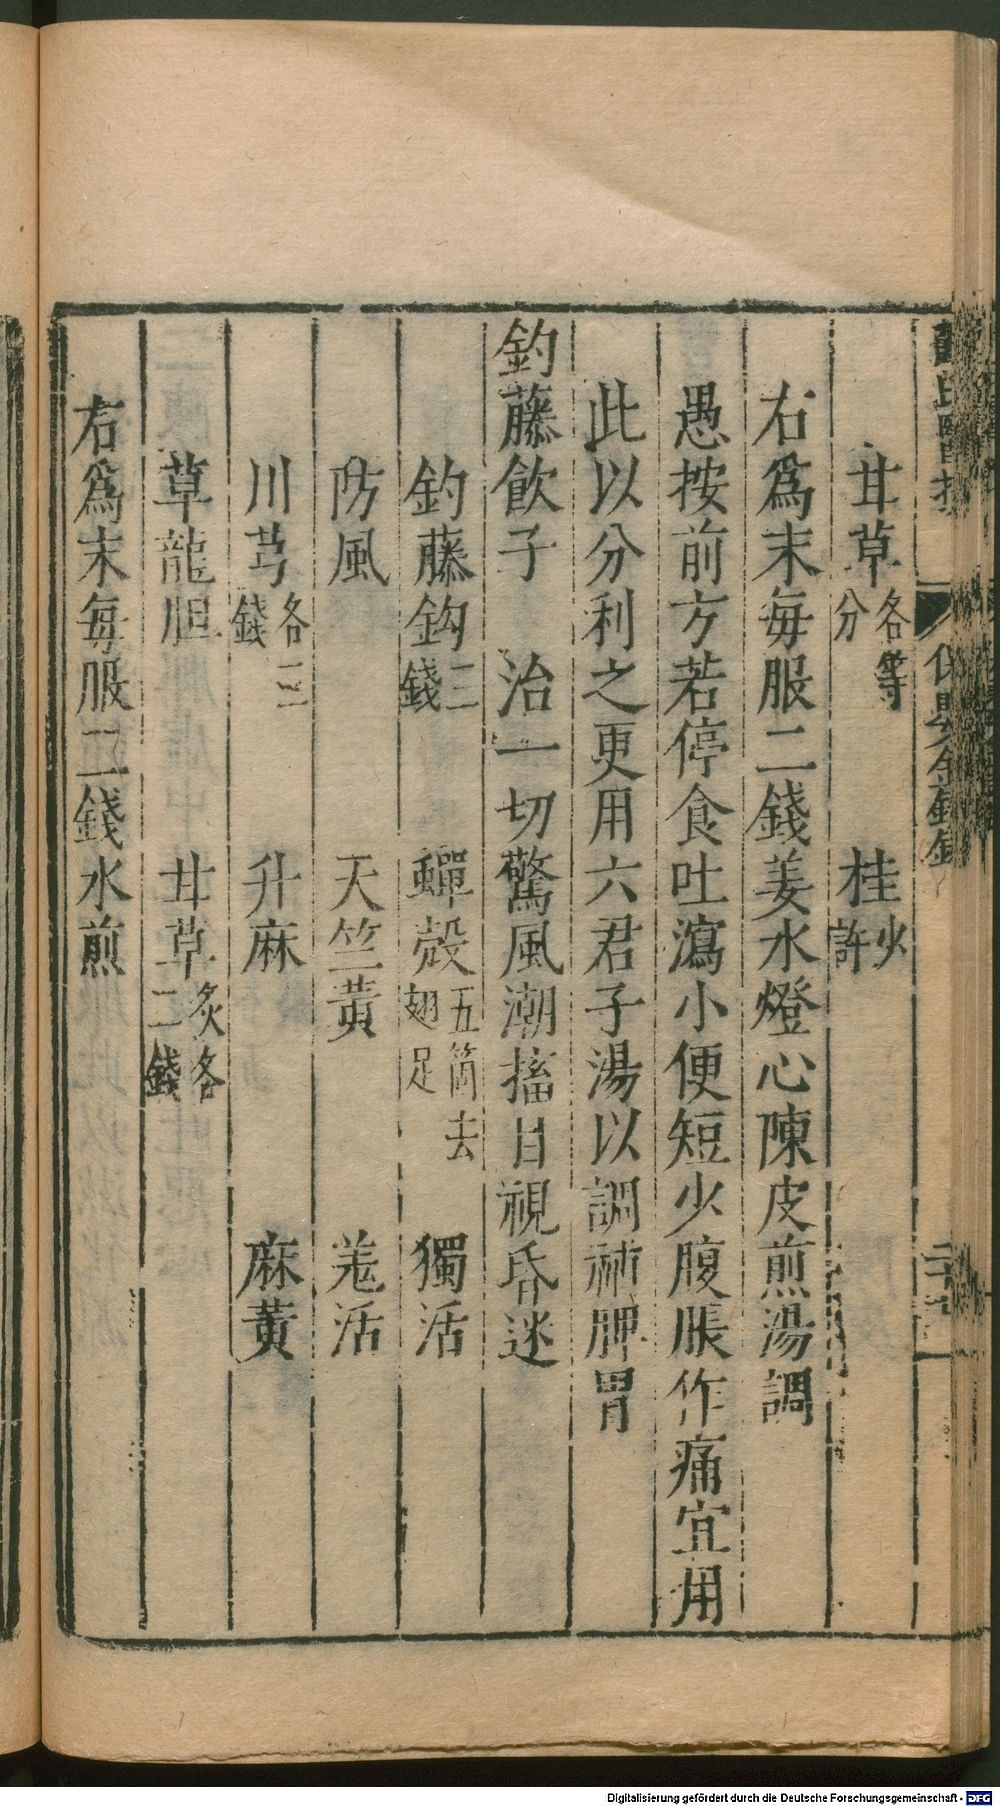 甘草各等分　桂少許
右爲末每服二錢姜水燈心陳皮煎湯調
愚按前方若停食吐瀉小便短少腹脹作痛宜用
此以分利之更用六君子湯以調補脾胃
釣藤飲子　治一切驚風潮搐目視昏迷
釣藤鈎三錢　蟬殼五箇去翅足　獨活
防風　天竺黃　羗活
川芎各三錢　升麻　麻黃
草龍胆　甘草炙各二錢
右爲末每服二錢水煎
Digitalisierung gefördert durch die Deutsche Forschungsgemeinschaft - DFG